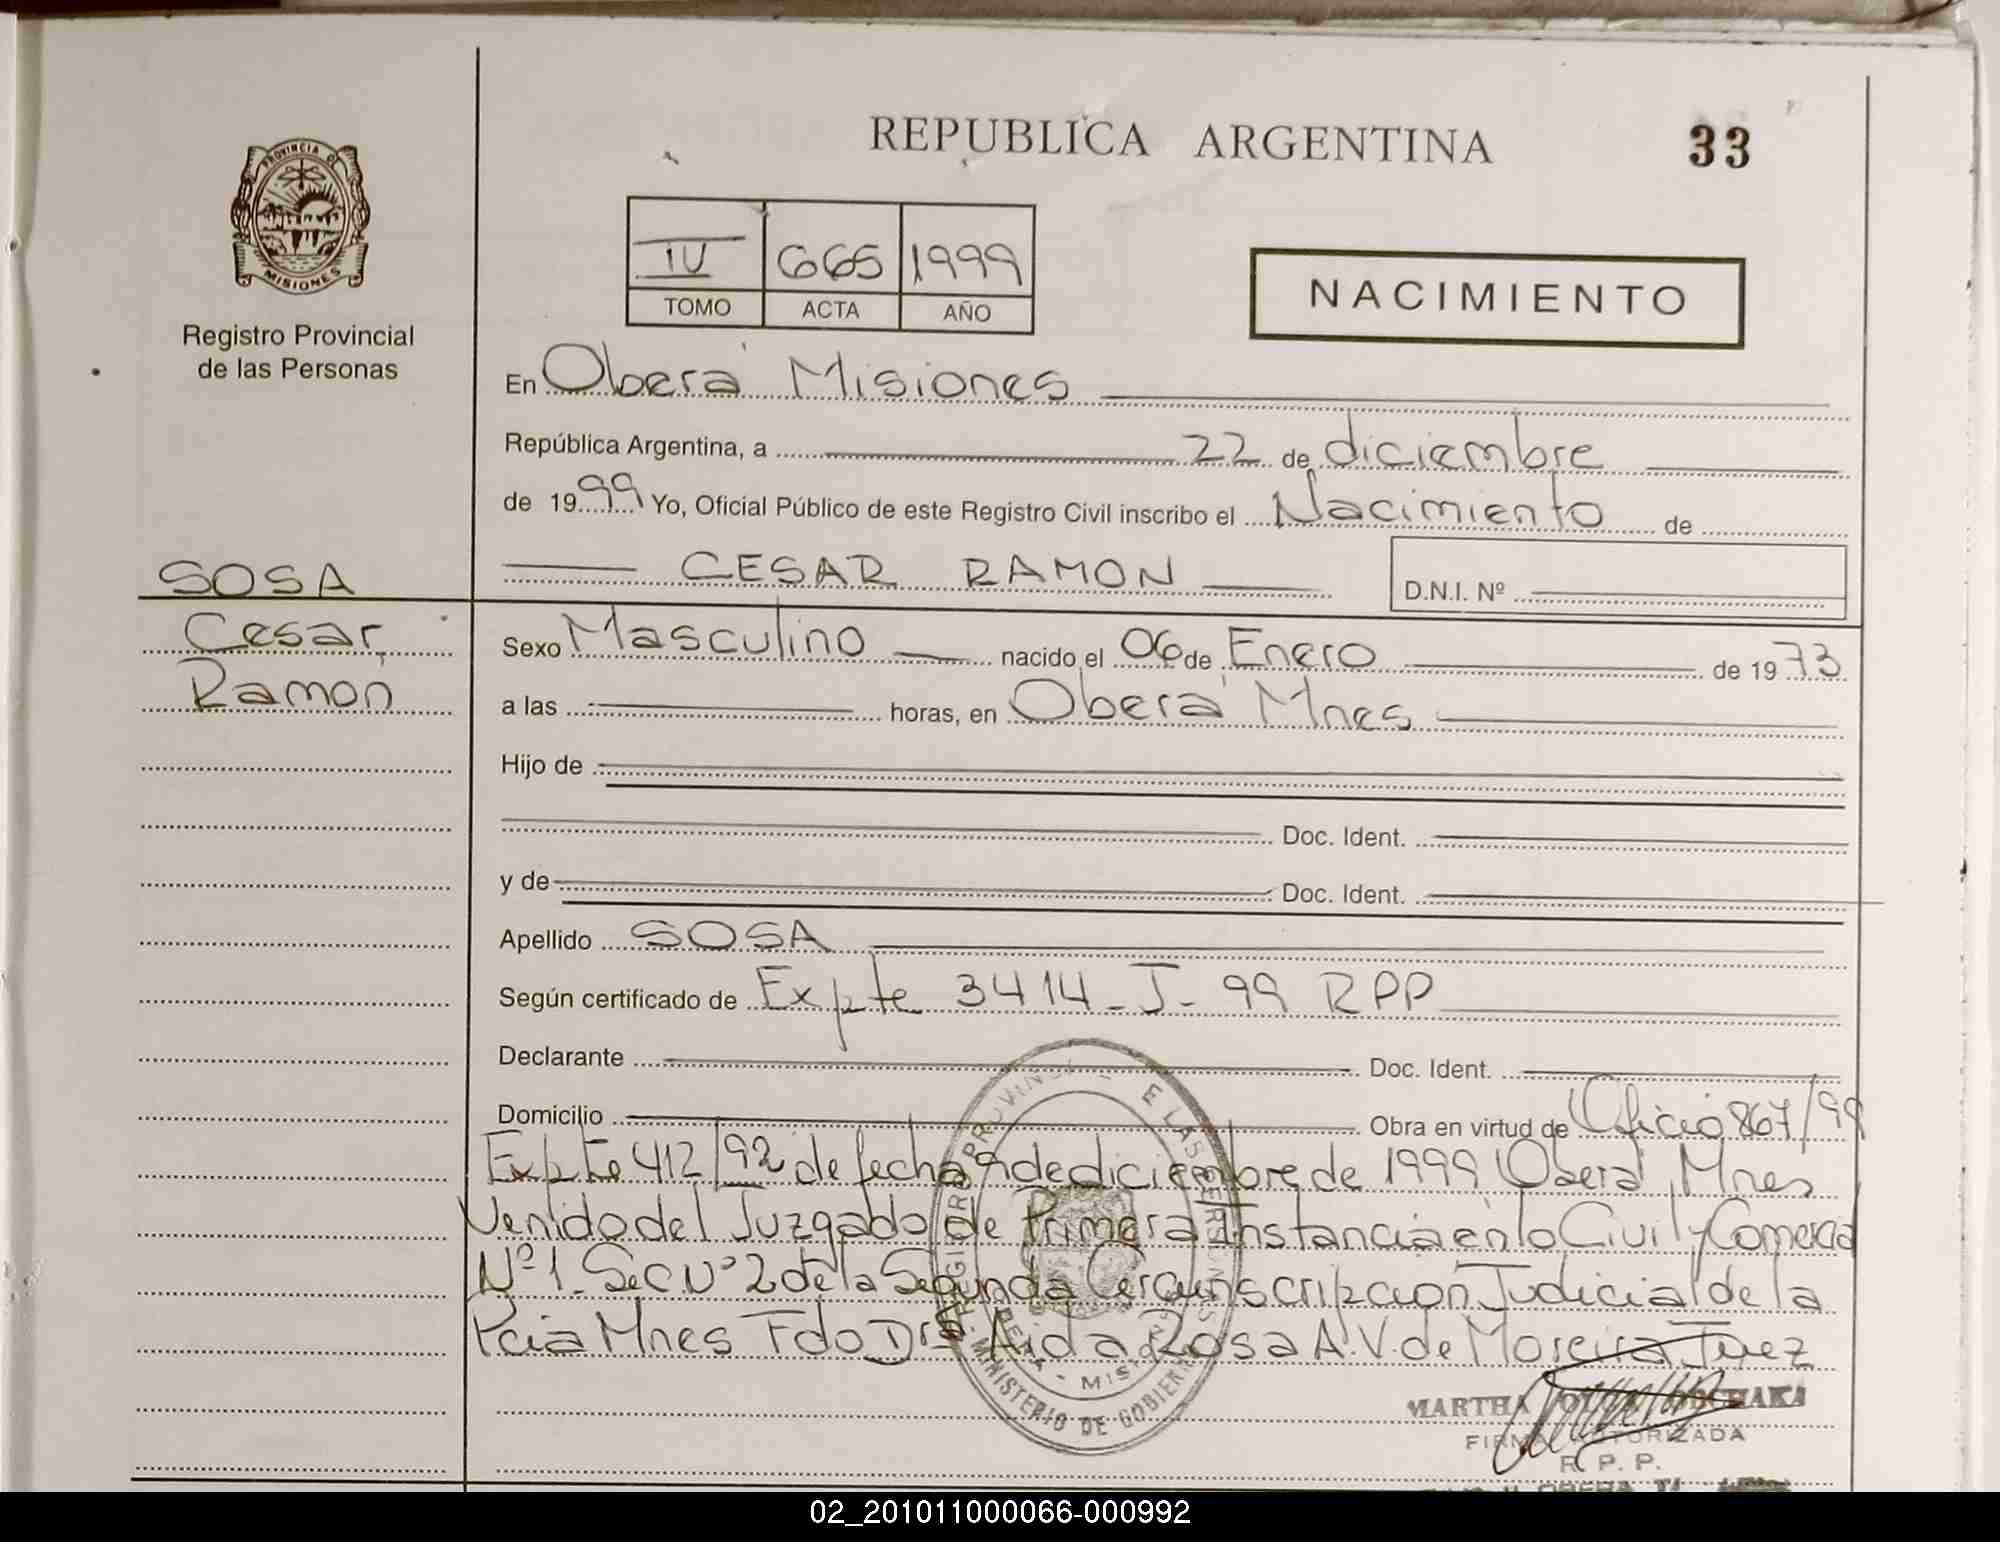 REPUBLICA ARGENTINA
33
PROVINCIA D
MISIONES
Registro Provincial
de las Personas
IV 665 1999
TOMO ACTA AÑO
NACIMIENTO
En Oberá Misiones
República Argentina, a 22 de diciembre
de 1999 Yo, Oficial Público de este Registro Civil inscribo el Nacimiento de
CESAR RAMON
D.N.I. Nº
SOSA
Cesar
Ramon
Sexo Masculino nacido el 06 de Enero de 1973
a las horas, en Oberá Mnes
Hijo de
Doc. Ident.
y de Doc. Ident.
Apellido SOSA
Según certificado de Expte 3414-J-99 RPP
Declarante Doc. Ident.
Domicilio Obra en virtud de Oficio 867/99
Expte 412/92 de fecha 9 de diciembre de 1999 Oberá Mnes
Venido del Juzgado de Primera Instancia en lo Civil y Comercial
Nº 1. Sec Nº 2 de la Segunda Circunscripcion Judicial de la
Pcia Mnes Fdo Dra Aida Rosa A.V. de Moreira Juez
MINISTERIO DE GOBIERN
MARTHA
FIRMA AUTORIZADA
R. P. P.
02_201011000066-000992